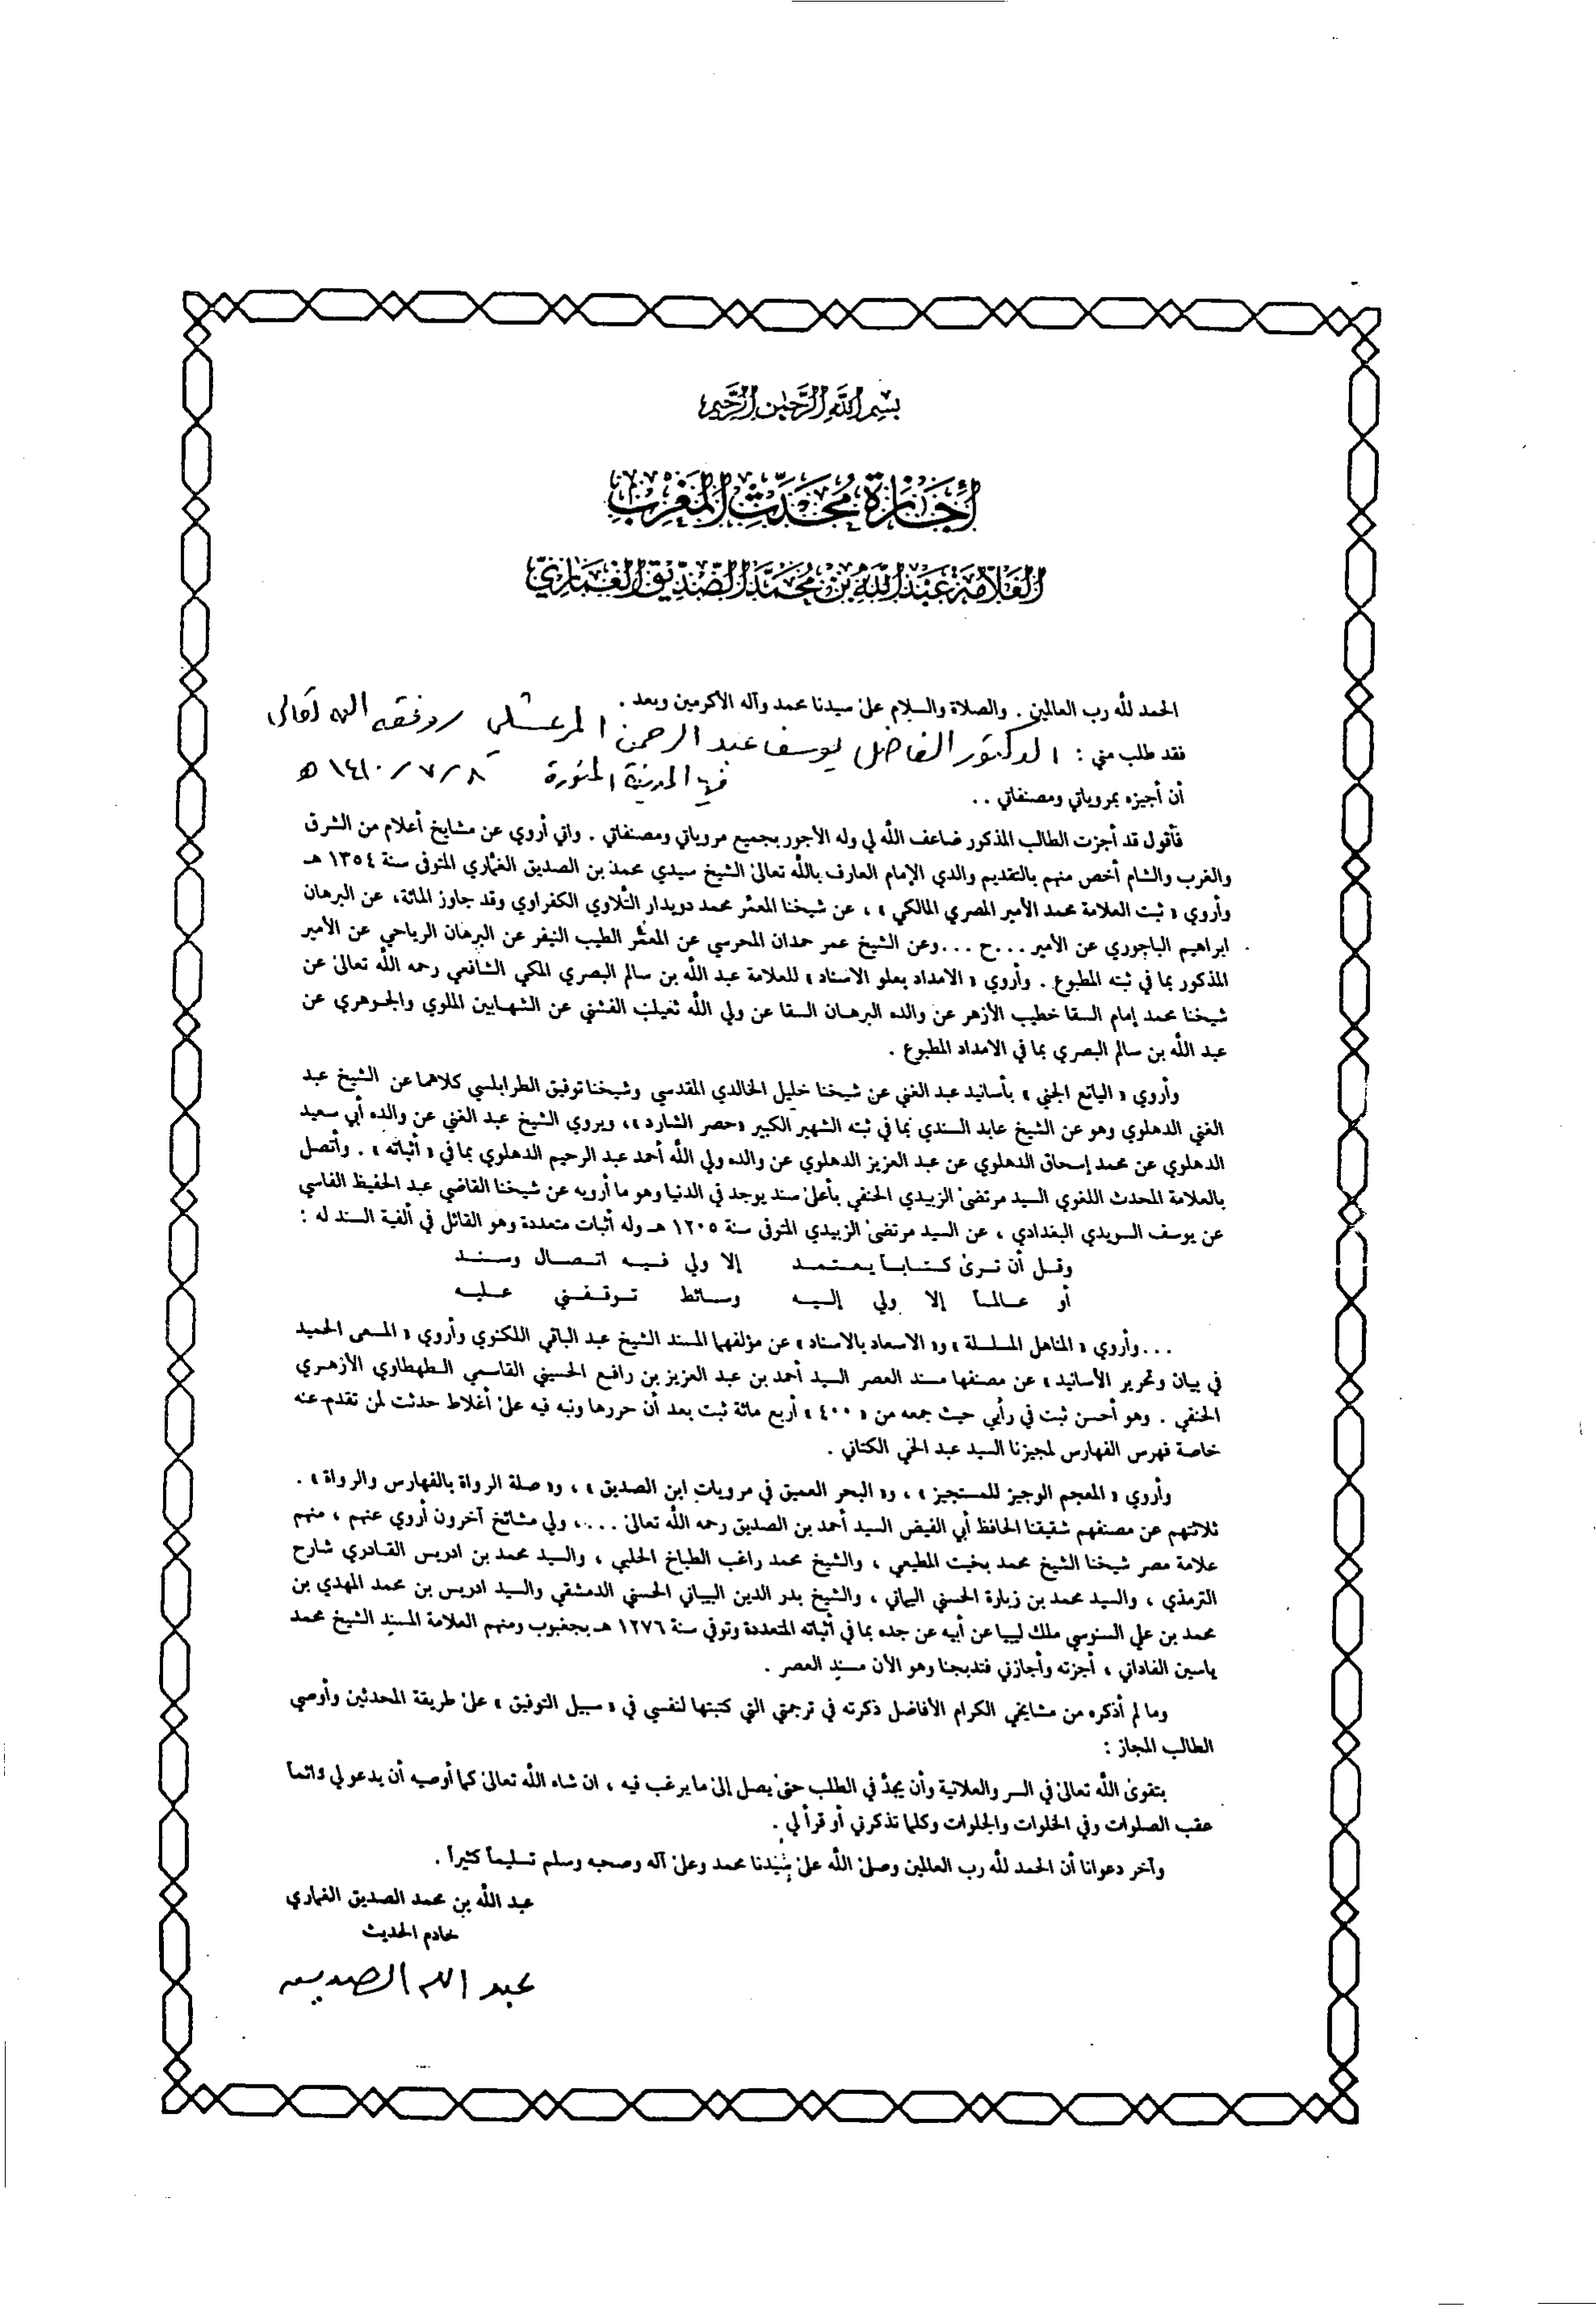 بسم الله الرحمن الرحيم
إجازة محدث المغرب
العلامة عبد الله بن محمد الصديق الغماري
الحمد لله رب العالمين . والصلاة والسلام على سيدنا محمد وآله الأكرمين وبعد .
فقد طلب مني : الدكتور الفاضل يوسف عبد الرحمن المرعشلي وفقه الله تعالى
في المدينة المنورة ٨ / ٧ / ١٤١٠ هـ
أن أجيزه بمروياتي ومصنفاتي . .
فأقول قد أجزت الطالب المذكور ضاعف الله لي وله الأجور بجميع مروياتي ومصنفاتي . واني أروي عن مشايخ أعلام من الشرق
والغرب والشام أخص منهم بالتقديم والدي الإمام العارف بالله تعالى الشيخ سيدي محمد بن الصديق الغماري المتوفى سنة ١٣٥٤ هـ
وأروي « ثبت العلامة محمد الأمير المصري المالكي » ، عن شيخنا المعمر محمد دويدار التلاوي الكفراوي وقد جاوز المائة، عن البرهان
ابراهيم الباجوري عن الأمير . . . ح . . . وعن الشيخ عمر حمدان المحرسي عن المعمر الطيب النيفر عن البرهان الرياحي عن الأمير
المذكور بما في ثبته المطبوع . وأروي « الامداد بعلو الاسناد » للعلامة عبد الله بن سالم البصري المكي الشافعي رحمه الله تعالى عن
شيخنا محمد إمام السقا خطيب الأزهر عن والده البرهان السقا عن ولي الله ثعيلب الفشني عن الشهابين الملوي والجوهري عن
عبد الله بن سالم البصري بما في الامداد المطبوع .
وأروي « اليانع الجني » بأسانيد عبد الغني عن شيخنا خليل الخالدي المقدسي وشيخنا توفيق الطرابلسي كلاهما عن الشيخ عبد
الغني الدهلوي وهو عن الشيخ عابد السندي بما في ثبته الشهير الكبير «حصر الشارد»، ويروي الشيخ عبد الغني عن والده أبي سعيد
الدهلوي عن محمد إسحاق الدهلوي عن عبد العزيز الدهلوي عن والده ولي الله أحمد عبد الرحيم الدهلوي بما في « أثباته » . وأتصل
بالعلامة المحدث اللغوي السيد مرتضى الزبيدي الحنفي بأعلى سند يوجد في الدنيا وهو ما أرويه عن شيخنا القاضي عبد الحفيظ الفاسي
عن يوسف السويدي البغدادي ، عن السيد مرتضى الزبيدي المتوفى سنة ١٢٠٥ هـ وله أثبات متعددة وهو القائل في ألفية السند له :
وقل أن ترى كتاباً يعتمد إلا ولي فيه اتصال وسند
أو عالماً إلا ولي إليه وسائط توقفني عليه
. . . وأروي « المناهل السلسلة » و« الاسعاد بالاسناد » عن مؤلفهما المسند الشيخ عبد الباقي اللكنوي وأروي « المسعى الحميد
في بيان وتحرير الأسانيد » عن مصنفها مسند العصر السيد أحمد بن عبد العزيز بن رافع الحسيني القاسمي الطهطاوي الأزهري
الحنفي . وهو أحسن ثبت في رأيي حيث جمعه من « ٤٠٠ » أربع مائة ثبت بعد أن حررها ونبه فيه على أغلاط حدثت لمن تقدم عنه
خاصة فهرس الفهارس لمجيزنا السيد عبد الحي الكتاني .
وأروي « المعجم الوجيز للمستجيز » ، و« البحر العميق في مرويات ابن الصديق » ، و« صلة الرواة بالفهارس والرواة » .
ثلاثتهم عن مصنفهم شقيقنا الحافظ أبي الفيض السيد أحمد بن الصديق رحمه الله تعالى . . . ، ولي مشائخ آخرون أروي عنهم ، منهم
علامة مصر شيخنا الشيخ محمد بخيت المطيعي ، والشيخ محمد راغب الطباخ الحلبي ، والسيد محمد بن ادريس القادري شارح
الترمذي ، والسيد محمد بن زبارة الحسني اليماني ، والشيخ بدر الدين البيباني الحسني الدمشقي والسيد ادريس بن محمد المهدي بن
محمد بن علي السنوسي ملك ليبيا عن أبيه عن جده بما في أثباته المتعددة وتوفي سنة ١٢٧٦ هـ بجغبوب ومنهم العلامة المسند الشيخ محمد
ياسين الفاداني ، أجزته وأجازني فتدبجنا وهو الآن مسند العصر .
وما لم أذكره من مشايخي الكرام الأفاضل ذكرته في ترجمتي التي كتبتها لنفسي في « سبيل التوفيق » على طريقة المحدثين وأوصي
الطالب المجاز :
بتقوى الله تعالى في السر والعلانية وأن يجدّ في الطلب حتى يصل إلى ما يرغب فيه ، ان شاء الله تعالى كما أوصيه أن يدعو لي دائماً
عقب الصلوات وفي الخلوات والجلوات وكلما تذكرني أو قرأ لي .
وآخر دعوانا أن الحمد لله رب العالمين وصلى الله على سيدنا محمد وعلى آله وصحبه وسلم تسليماً كثيراً .
عبد الله بن محمد الصديق الغماري
خادم الحديث
عبد الله الصديق